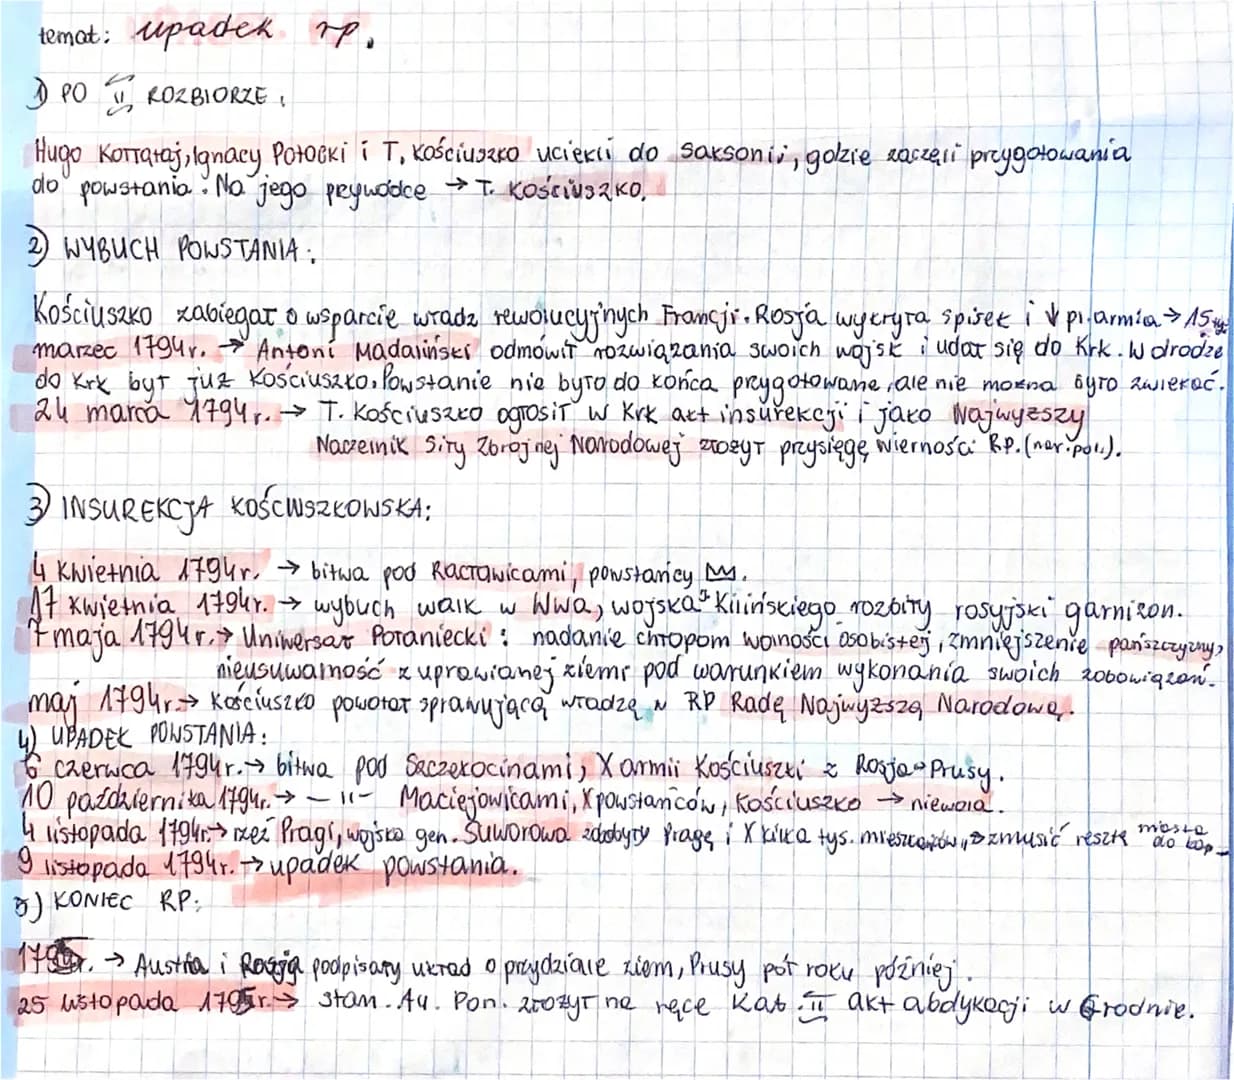 temat: upadek rp.
1) PO II ROZBIORZE:
Hugo Kołłątaj, Ignacy Potocki i T. Kościuszko uciekli do Saksonii, gdzie zaczęli przygotowania
do powstania. Na jego przywódce → T. Kościuszko.
2) WYBUCH POWSTANIA:
Kościuszko zabiegał o wsparcie władz rewolucyjnych Francji. Rosja wykryła spisek i ↓ pl. armia → 15 tyś
marzec 1794r. → Antoni Madaliński odmówił rozwiązania swoich wojsk i udał się do Krk. W drodze
do Krk był już Kościuszko. Powstanie nie było do końca przygotowane, ale nie można było zwlekać.
24 marca 1794r. → T. Kościuszko ogłosił w Krk akt insurekcji i jako Najwyższy
Naczelnik Siły Zbrojnej Narodowej złożył przysięgę wierności RP. (nar. pol.).
3) INSUREKCJA KOŚCIUSZKOWSKA:
4 kwietnia 1794r. → bitwa pod Racławicami, powstańcy
17 kwietnia 1794r. → wybuch walk w Wwa, wojska J Kilińskiego rozbiły rosyjski garnizon.
7 maja 1794r. → Uniwersał Połaniecki: nadanie chłopom wolności osobistej, zmniejszenie pańszczyzny,
nieusuwalność z uprawianej ziemi pod warunkiem wykonania swoich zobowiązań.
maj 1794r. → Kościuszko powołał sprawującą władzę w RP Radę Najwyższą Narodową.
4) UPADEK POWSTANIA:
6 czerwca 1794r. → bitwa pod Szczekocinami, X armii Kościuszki z Rosja Prusy.
10 października 1794r. → – 11 – Maciejowicami, X powstańców, Kościuszko → niewola.
4 listopada 1794r. → rzeź Pragi, wojska gen. Suworowa zdobyły Pragę i X kilka tys. mieszkańców, zmusić resztę miasta do kap–
9 listopada 1794r. → upadek powstania.
5) KONIEC RP:
1795r. → Austria i Rosja podpisały układ o przydziale ziem, Prusy pół roku później.
25 listopada 1795r. → Stan. Au. Pon. złożył na ręce Kat. II akt abdykacji w Grodnie.